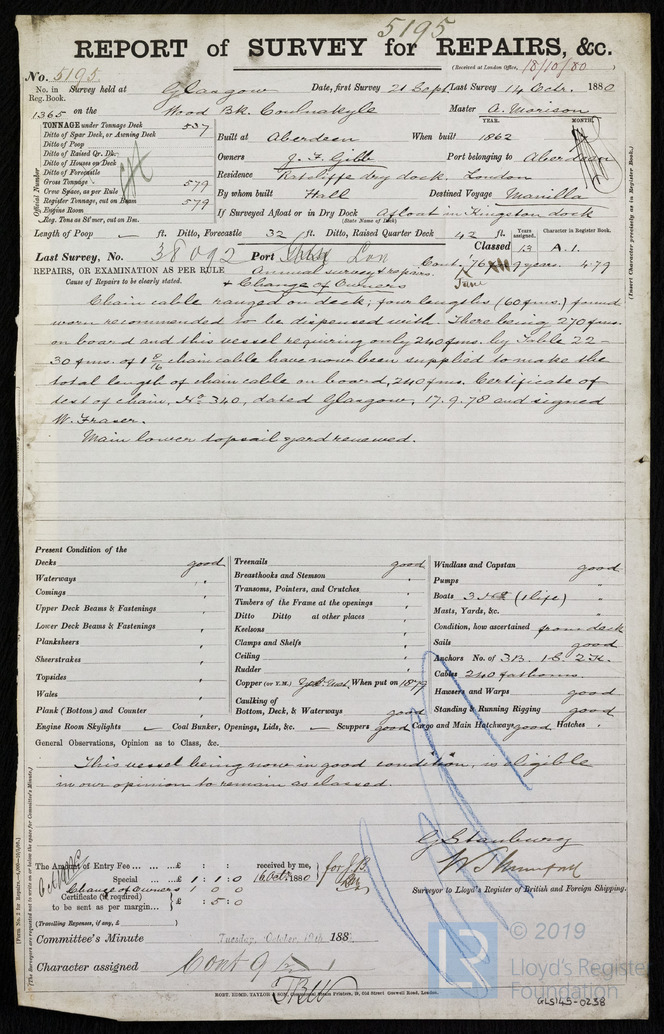 5195
REPORT of SURVEY for REPAIRS, &c.
(Received at London Office, 18/10/80
No. 5195.
No. in Reg. Book. Survey held at Glasgow Date, first Survey 21 Sept Last Survey 14 Octr. 1880
1365 on the Wood Bk. Coulnakyle Master A. Morison
TONNAGE under Tonnage Deck 537
Ditto of Spar Deck, or Awning Deck
Ditto of Poop
Ditto of Raised Qr. Dk.
Ditto of Houses on Deck
Ditto of Forecastle
Gross Tonnage 579
Crew Space, as per Rule
Register Tonnage, cut on Beam 579
Engine Room
Reg. Tons as St'mer, cut on Bm.
Official Number
YEAR. MONTH.
Built at Aberdeen When built 1862
Owners J. F. Gibb Port belonging to Aberdeen
Residence Ratcliffe dry dock, London
By whom built Hall Destined Voyage Manilla
If Surveyed Afloat or in Dry Dock Afloat in Kingston dock
(State Name of Dock)
Length of Poop ft. Ditto, Forecastle 32 ft. Ditto, Raised Quarter Deck 42 ft. Years assigned. Character in Register Book.
Last Survey, No. 38092 Port Lon Classed 13 A.1.
Cont. '76 9 years. 4.79
June
REPAIRS, OR EXAMINATION AS PER RULE Annual survey & repairs.
Cause of Repairs to be clearly stated. + Change of Owners
Chain cable ranged on deck; four lengths (60 fms.) found
worn recommended to be dispensed with. There being 270 fms.
on board and this vessel requiring only 240 fms. by Table 22 -
30 fms. of 1 5/16 chain cable have now been supplied to make the
total length of chain cable on board, 240 fms. Certificate of
test of chain, No. 340, dated Glasgow, 17.9.78 and signed
W. Fraser.
Main lower topsail yard renewed.
Present Condition of the
Decks good
Waterways "
Comings "
Upper Deck Beams & Fastenings "
Lower Deck Beams & Fastenings "
Planksheers "
Sheerstrakes "
Topsides "
Wales "
Plank (Bottom) and Counter "
Treenails good
Breasthooks and Stemson "
Transoms, Pointers, and Crutches "
Timbers of the Frame at the openings "
Ditto Ditto at other places "
Keelsons "
Clamps and Shelfs "
Ceiling "
Rudder "
Copper (or Y.M.) When put on 1879
Caulking of
Bottom, Deck, & Waterways good
Windlass and Capstan good
Pumps "
Boats 3 (1 life) "
Masts, Yards, &c. "
Condition, how ascertained from deck
Sails good
Anchors No. of 3 B. 1 S. 2 K.
Cables 240 fathoms.
Hawsers and Warps good
Standing & Running Rigging good
Engine Room Skylights Coal Bunker, Openings, Lids, &c. Scuppers good Cargo and Main Hatchways good Hatches "
General Observations, Opinion as to Class, &c.
This vessel being now in good condition, is eligible
in our opinion to remain as classed.
G. Stanbury
Surveyor to Lloyd's Register of British and Foreign Shipping.
The Amount of Entry Fee £ : : received by me,
Special £ 1 : 1 : 0 16 Octr. 1880
Change of Owners 1 0
Certificate (if required) to be sent as per margin £ : 5 : 0
(Travelling Expenses, if any, £ )
Committee's Minute Tuesday, October 19th, 188
Character assigned Cont 9
(Insert Character precisely as in Register Book.)
(The Surveyors are requested not to write on or below the space for Committee's Minute)
© 2019
LR
Lloyd's Register
Foundation
GLS145-0238